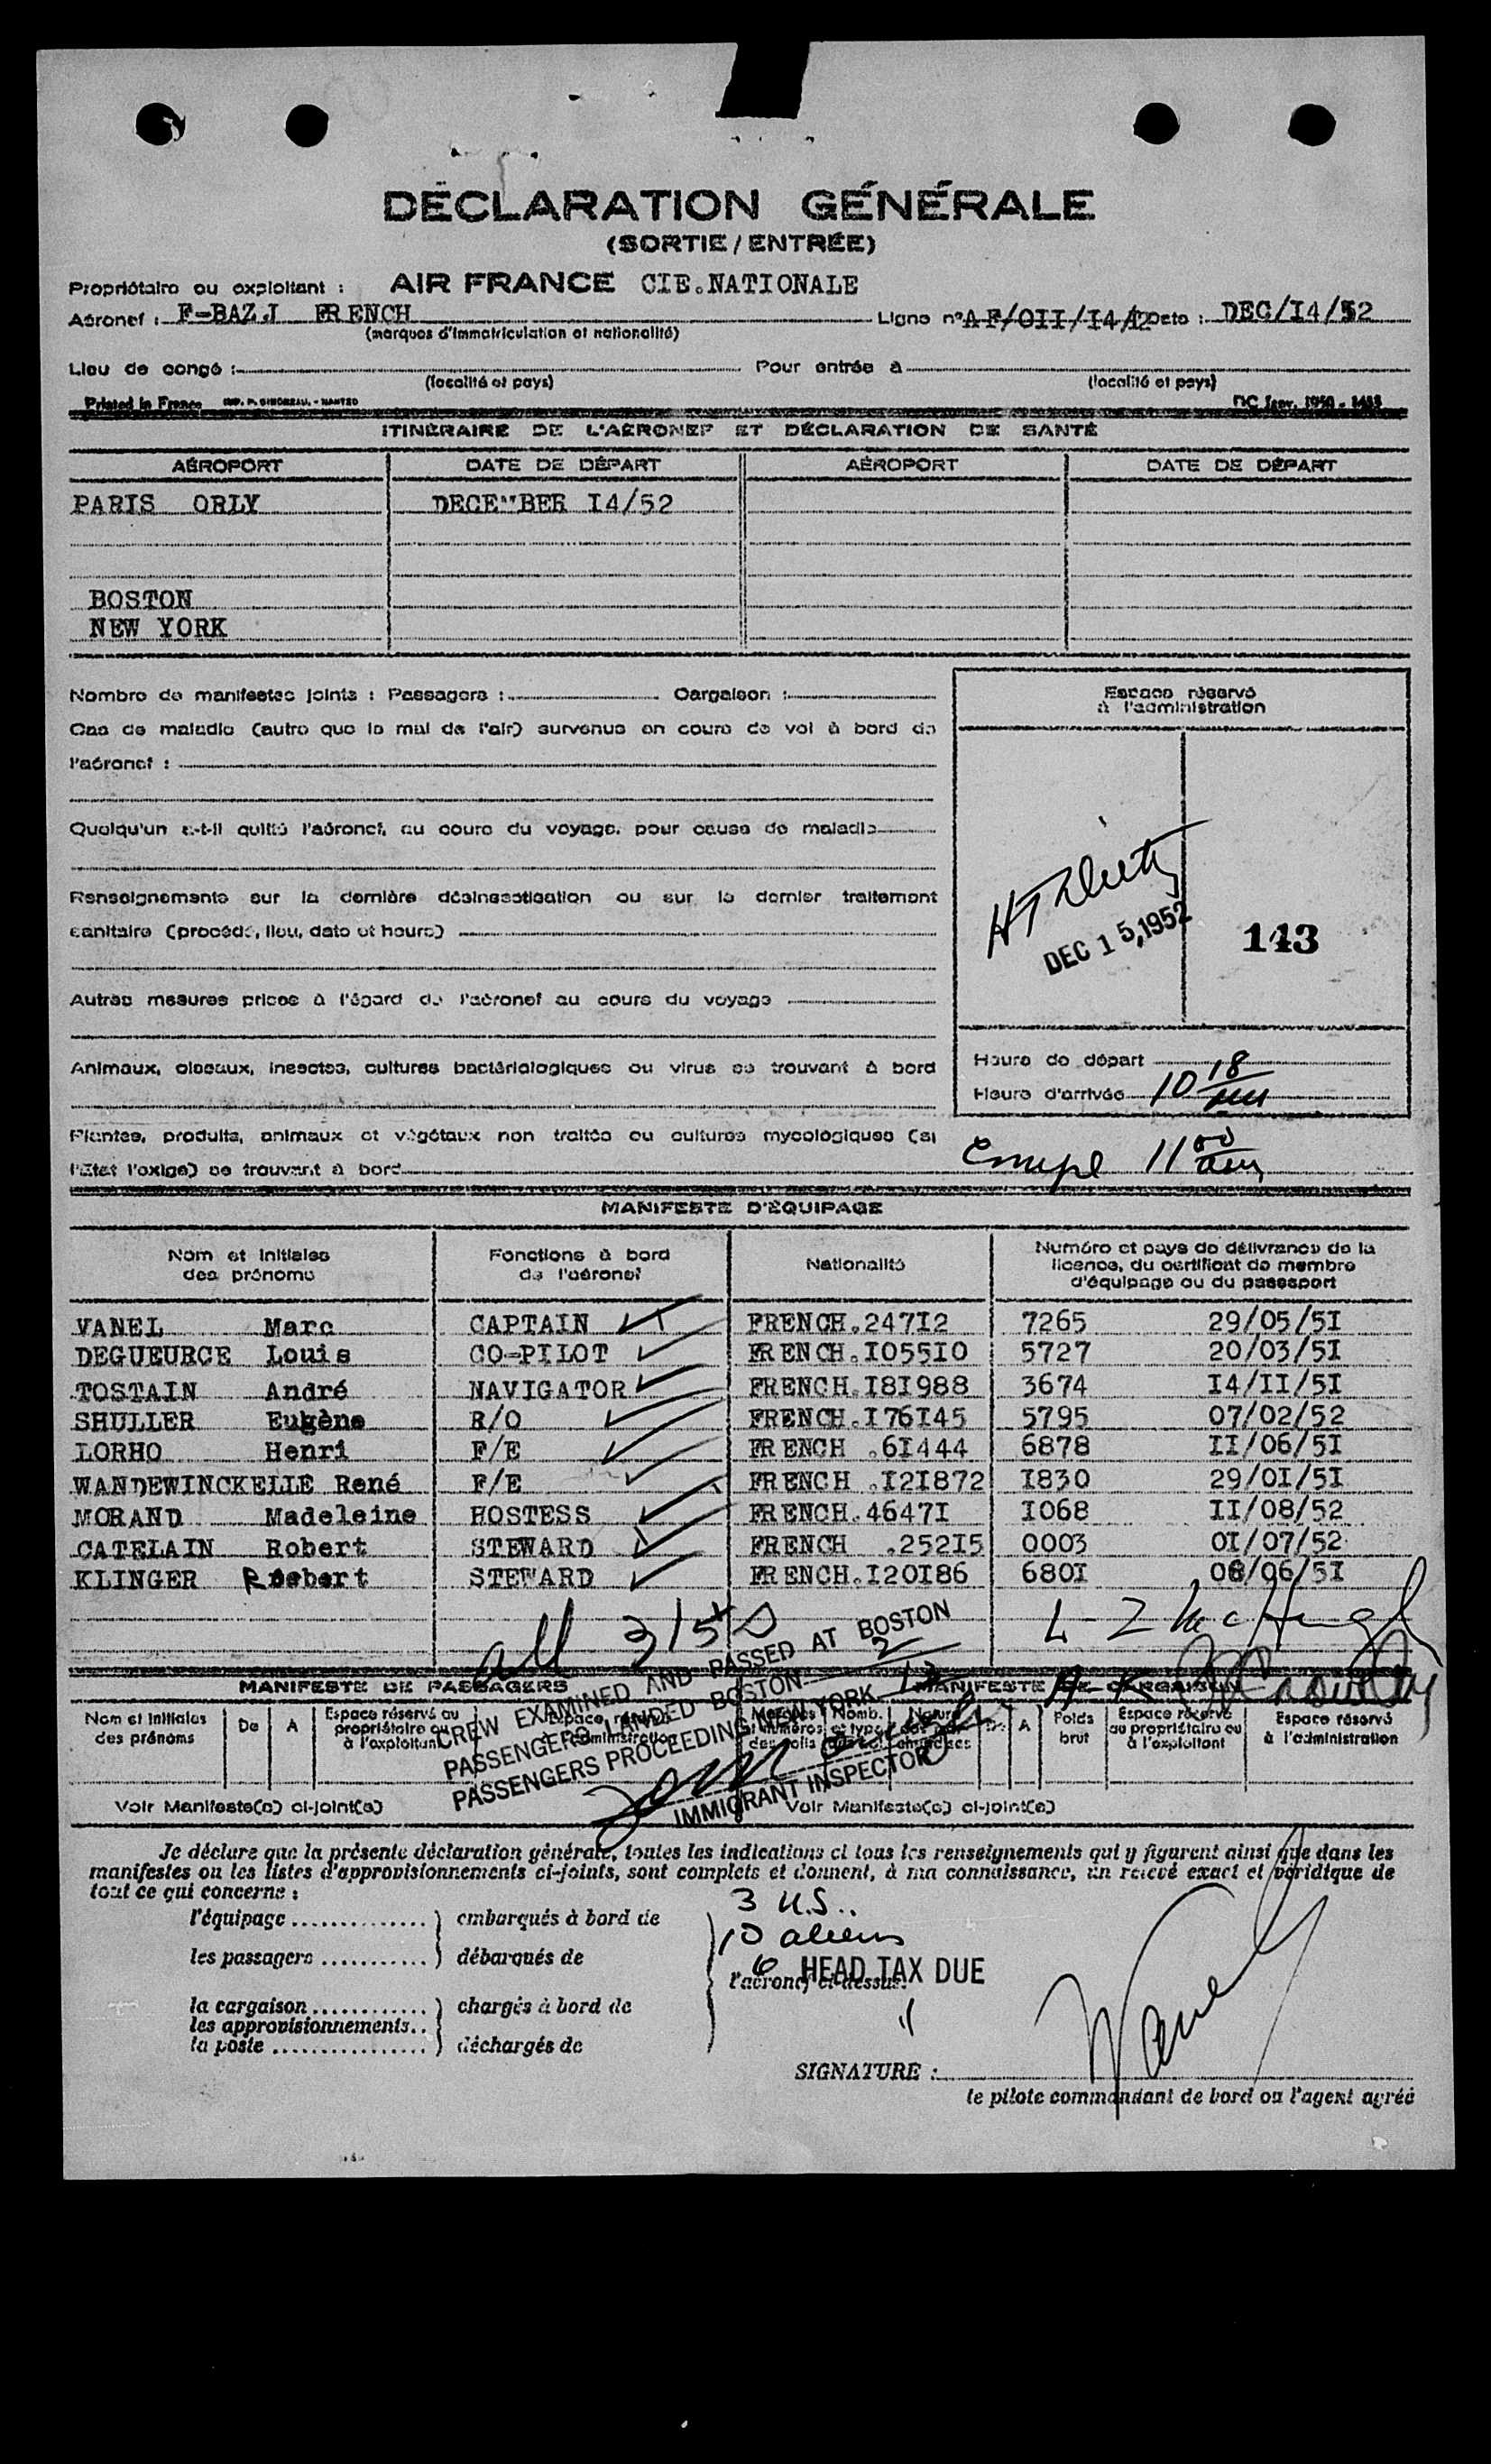 DÉCLARATION GÉNÉRALE
(SORTIE/ENTRÉE)
Propriétaire ou exploitant : AIR FRANCE CIE.NATIONALE
Aéronef : F-BAZJ FRENCH Ligne n° AF/OII/I4/I2 Date : DEC/I4/52
(marques d'immatriculation et nationalité)
Lieu de congé : Pour entrée à
(localité et pays) (localité et pays)
Printed in France
ITINÉRAIRE DE L'AÉRONEF ET DÉCLARATION DE SANTÉ
AÉROPORT DATE DE DÉPART AÉROPORT DATE DE DÉPART
PARIS ORLY DECEMBER I4/52
BOSTON
NEW YORK
Nombre de manifestes joints : Passagers : Cargaison :
Espace réservé
à l'administration
Cas de maladie (autre que le mal de l'air) survenus en cours de vol à bord de
l'aéronef :
Quelqu'un a-t-il quitté l'aéronef, au cours du voyage, pour cause de maladie
Renseignements sur la dernière désinsectisation ou sur le dernier traitement
sanitaire (procédé, lieu, date et heure)
DEC 15,1952
143
Autres mesures prises à l'égard de l'aéronef au cours du voyage
Animaux, oiseaux, insectes, cultures bactériologiques ou virus se trouvant à bord
Heure de départ
Heure d'arrivée 10 18 am
Plantes, produits, animaux et végétaux non traités ou cultures mycologiques (si
l'Etat l'exige) se trouvant à bord
11 00 am
MANIFESTE D'ÉQUIPAGE
Nom et initiales des prénoms
Fonctions à bord de l'aéronef
Nationalité
Numéro et pays de délivrance de la licence, du certificat de membre d'équipage ou du passeport
VANEL Marc CAPTAIN FRENCH.247I2 7265 29/05/5I
DEGUEURCE Louis CO-PILOT FRENCH.I055I0 5727 20/03/5I
TOSTAIN André NAVIGATOR FRENCH.I8I988 3674 I4/II/5I
SHULLER Eugène R/O FRENCH.I76I45 5795 07/02/52
LORHO Henri F/E FRENCH .6I444 6878 II/06/5I
WANDEWINCKELLE René F/E FRENCH .I2I872 I830 29/0I/5I
MORAND Madeleine HOSTESS FRENCH.4647I I068 II/08/52
CATELAIN Robert STEWARD FRENCH .252I5 0003 0I/07/52
KLINGER Robert STEWARD FRENCH.I20I86 680I 08/06/5I
all 3/5
CREW EXAMINED AND PASSED AT BOSTON
PASSENGERS LANDED BOSTON 2
PASSENGERS PROCEEDING NEW YORK
IMMIGRANT INSPECTOR
MANIFESTE DE PASSAGERS MANIFESTE DE CARGAISON
Nom et initiales des prénoms
De A
Espace réservé au propriétaire ou à l'exploitant
Espace réservé à l'administration
De A
Poids brut
Espace réservé au propriétaire ou à l'exploitant
Espace réservé à l'administration
Voir Manifeste(s) ci-joint(s) Voir Manifeste(s) ci-joint(s)
Je déclare que la présente déclaration générale, toutes les indications et tous les renseignements qui y figurent ainsi que dans les
manifestes ou les listes d'approvisionnements ci-joints, sont complets et donnent, à ma connaissance, un relevé exact et véridique de
tout ce qui concerne :
l'équipage .............. ) embarqués à bord de
les passagers ........... ) débarqués de
la cargaison ............ ) chargés à bord de
les approvisionnements..
la poste ................ ) déchargés de
l'aéronef ci-dessus.
3 U.S.
10 aliens
6 HEAD TAX DUE
SIGNATURE : Vanel
le pilote commandant de bord ou l'agent agréé